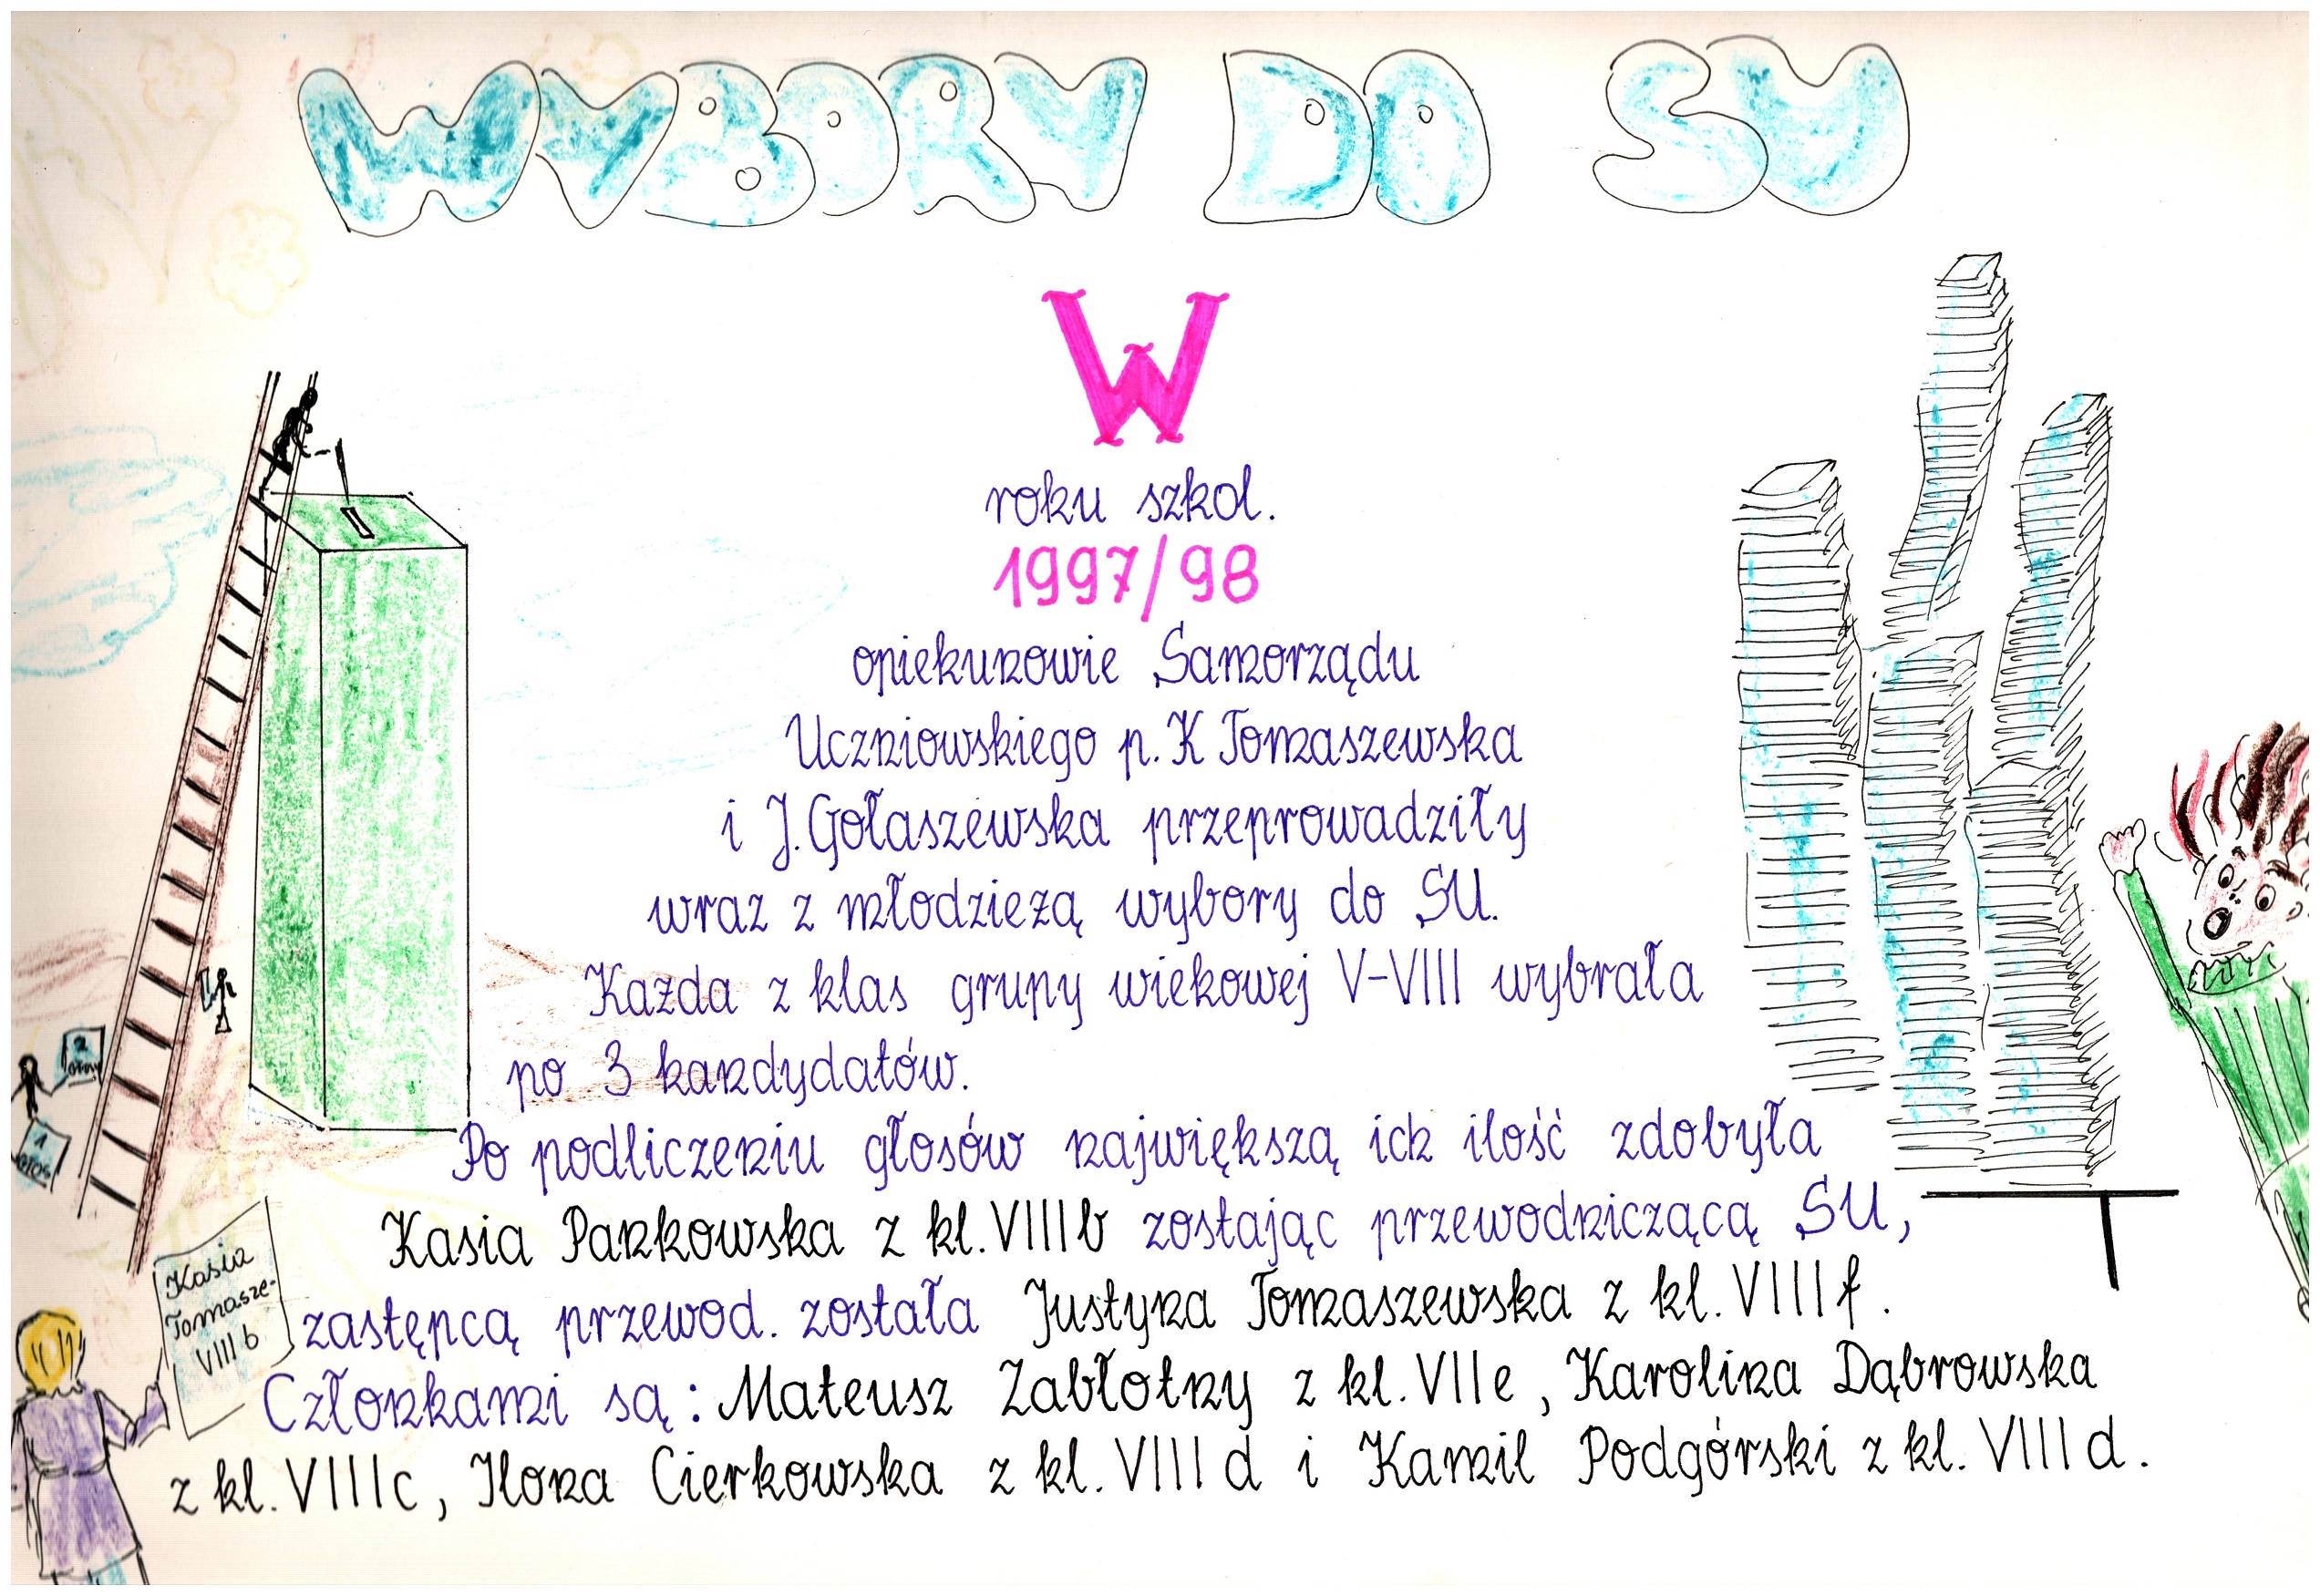 WYBORY DO SU
W
roku szkol.
1997/98
opiekunowie Samorządu
Uczniowskiego p. K Tomaszewska
i J. Gołaszewska przeprowadziły
wraz z młodzieżą wybory do SU.
Każda z klas grupy wiekowej V-VIII wybrała
po 3 kandydatów.
Po podliczeniu głosów największą ich ilość zdobyła
Kasia Pankowska z kl. VIII b zostając przewodniczącą SU,
zastępcą przewod. została Justyna Tomaszewska z kl. VIII f.
Członkami są: Mateusz Zabłotny z kl. VII e, Karolina Dąbrowska
z kl. VIII c, Ilona Cierkowska z kl. VIII d i Kamil Podgórski z kl. VIII d.
2
1
głos
Kasia
Tomasze-
VIII b